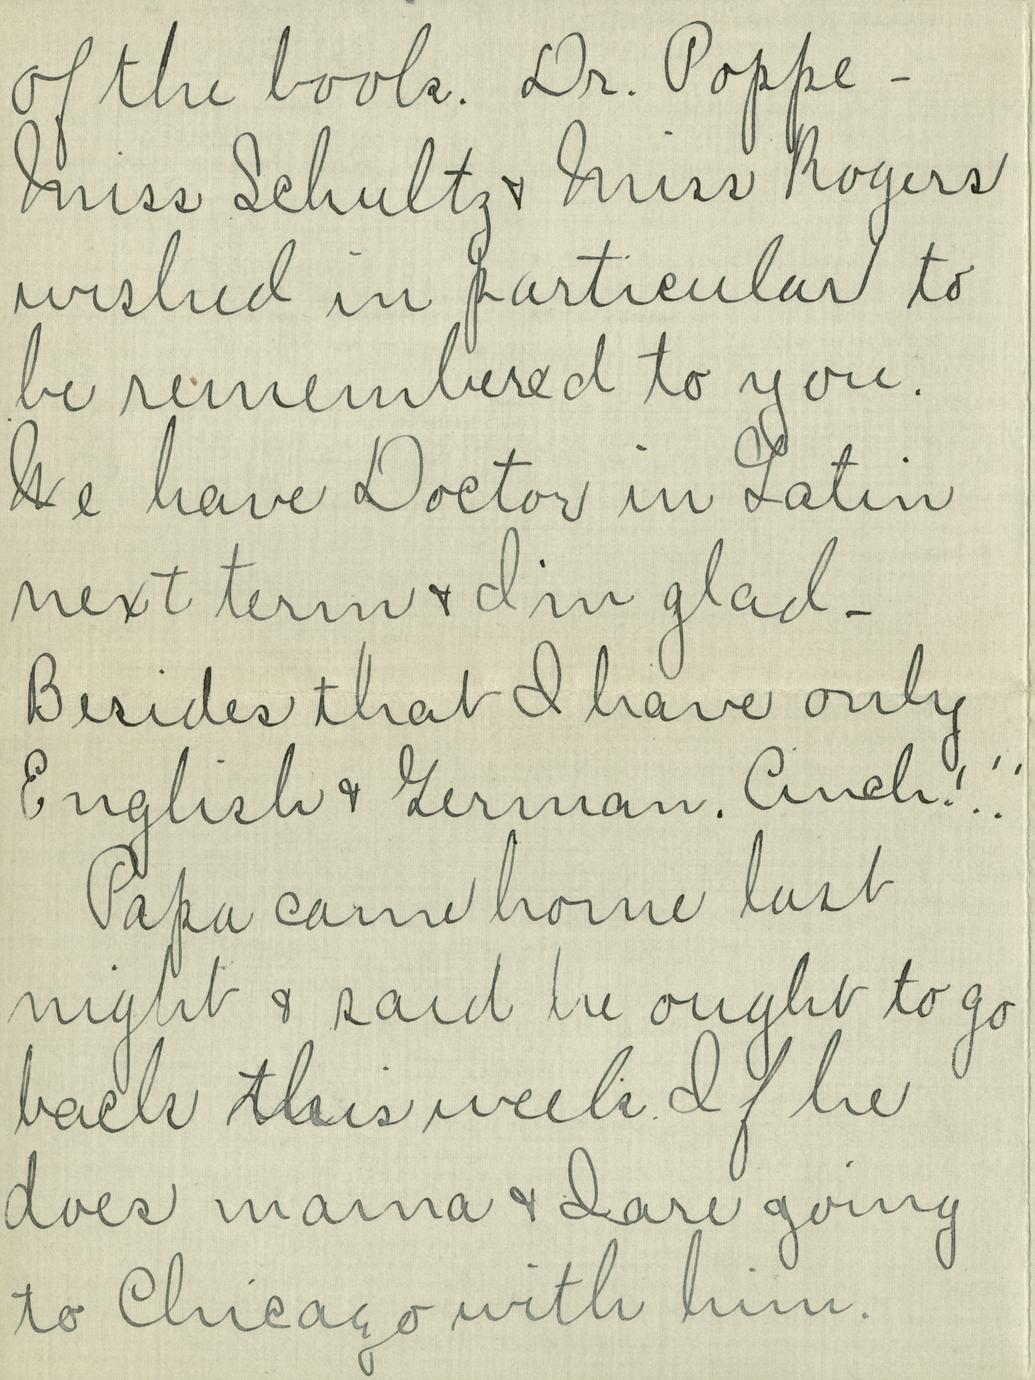 of the book. Dr. Poppe -
Miss Schultz & Miss Rogers
wished in particular to
be remembered to you.
We have Doctor in Latin
next term & I'm glad -
Besides that I have only
English & German. Cinch!!!
Papa came home last
night & said he ought to go
back this week. If he
does mama & I are going
to Chicago with him.